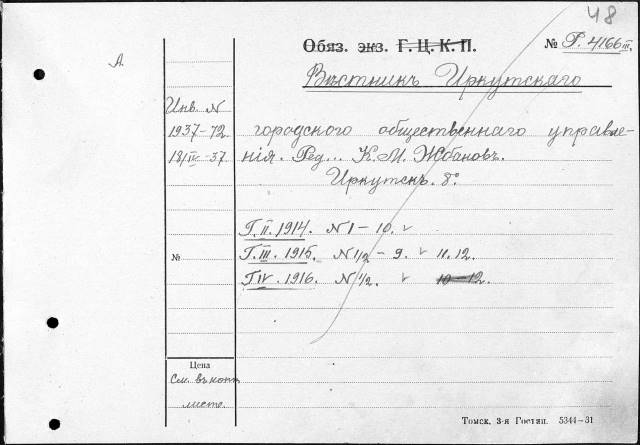 48
Обяз. экз. Г. Ц. К. П.
№ Р. 4166 III,
А.
Вѣстникъ Иркутскаго
Инв. N
1937-72
181/IV-37
городского общественнаго управле-
нія. Ред... К. М. Жбановъ.
Иркутскъ. 8°
Г. II. 1914. N 1 - 10. ✓
Г. III. 1915. N 1/2 - 9. ✓ 11. 12.
№
Г IV. 1916. N 1/2. ✓ 10-12.
Цена
См. въ конт.
листе.
Томск, 3-я Гостип. 5344-31